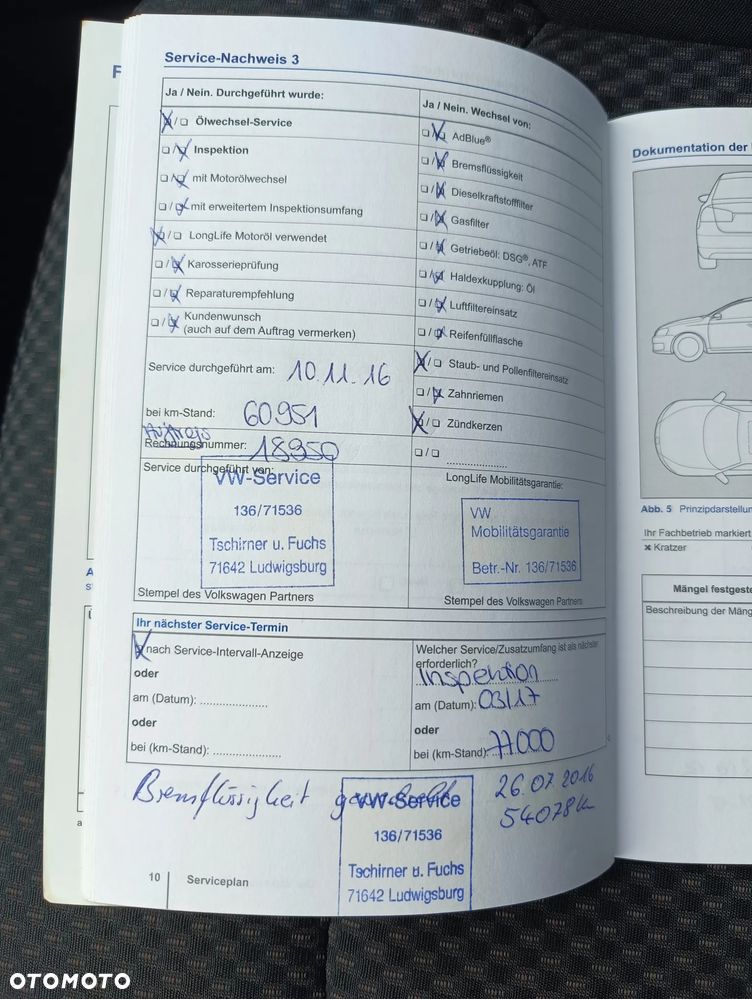 Service-Nachweis 3
Ja / Nein. Durchgeführt wurde:
Ölwechsel-Service
Inspektion
mit Motorölwechsel
mit erweitertem Inspektionsumfang
LongLife Motoröl verwendet
Karosserieprüfung
Reparaturempfehlung
Kundenwunsch
(auch auf dem Auftrag vermerken)
Service durchgeführt am: 10.11.16
bei km-Stand: 60951
Auftrags
Rechnungsnummer: 18950
Service durchgeführt von:
VW-Service
136/71536
Tschirner u. Fuchs
71642 Ludwigsburg
Stempel des Volkswagen Partners
Ja / Nein. Wechsel von:
AdBlue®
Bremsflüssigkeit
Dieselkraftstofffilter
Gasfilter
Getriebeöl: DSG®, ATF
Haldexkupplung: Öl
Luftfiltereinsatz
Reifenfüllflasche
Staub- und Pollenfiltereinsatz
Zahnriemen
Zündkerzen
LongLife Mobilitätsgarantie:
VW
Mobilitätsgarantie
Betr.-Nr. 136/71536
Stempel des Volkswagen Partners
Ihr nächster Service-Termin
nach Service-Intervall-Anzeige
oder
am (Datum):
oder
bei (km-Stand):
Welcher Service/Zusatzumfang ist als nächster
erforderlich?
Inspektion
am (Datum): 03/17
oder
bei (km-Stand): 77000
Bremsflüssigkeit gewechselt
26.07.2016
54078
VW-Service
136/71536
Tschirner u. Fuchs
71642 Ludwigsburg
10 Serviceplan
Dokumentation der
Abb. 5 Prinzipdarstellun
Ihr Fachbetrieb markiert
Kratzer
Mängel festgeste
Beschreibung der Mäng
OTOMOTO